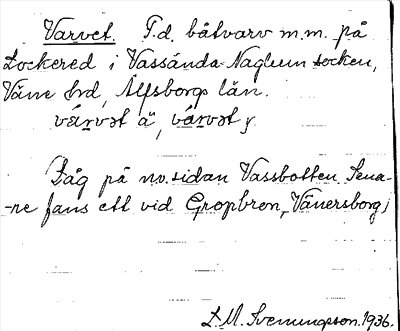 Varvet. T.d. båtvarv m.m. på
Lockered i Vassända-Naglum socken,
Väne hrd, Älfsborgs län.
várvət ä, várvət y
Låg på nv. sidan Vassbotten Sena-
-re fans ett vid Gropbron, Vänersborg;
L.M. Svenungson. 1936.